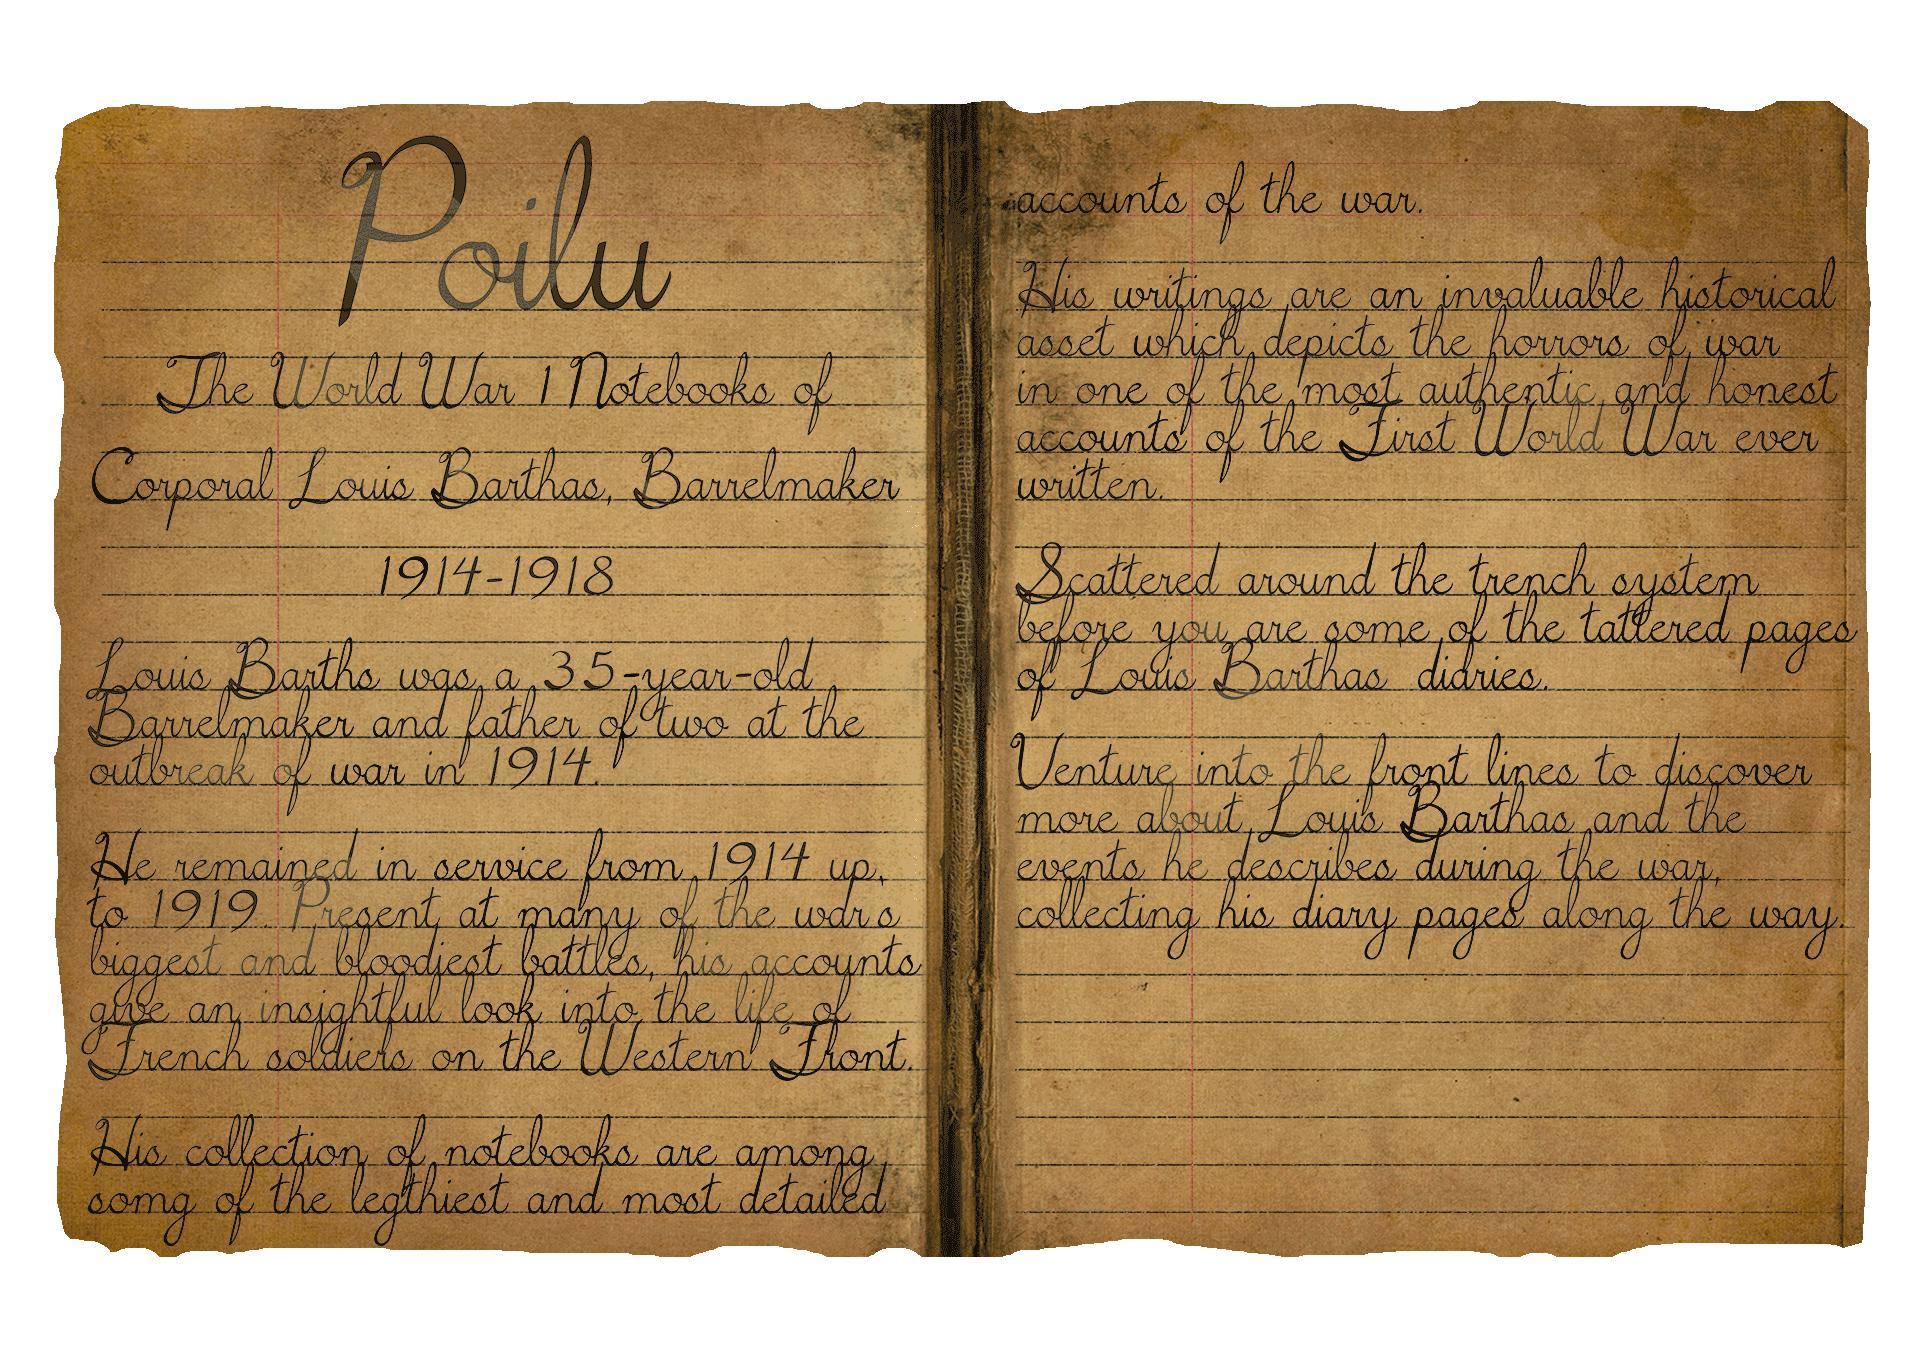 Poilu
The World War 1 Notebooks of
Corporal Louis Barthas, Barrelmaker
1914-1918
Louis Barths was a 35-year-old
Barrelmaker and father of two at the
outbreak of war in 1914.
He remained in service from 1914 up,
to 1919. Present at many of the war's
biggest and bloodiest battles, his accounts
give an insightful look into the life of
French soldiers on the Western Front.
His collection of notebooks are among
somg of the legthiest and most detailed
accounts of the war.
His writings are an invaluable historical
asset which depicts the horrors of war
in one of the most authentic and honest
accounts of the First World War ever
written.
Scattered around the trench system
before you are some of the tattered pages
of Louis Barthas diaries.
Venture into the front lines to discover
more about Louis Barthas and the
events he describes during the war,
collecting his diary pages along the way.